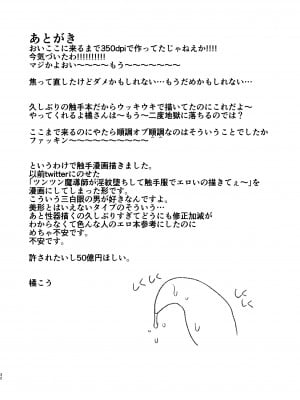 あとがき
おいここに来るまで350dpiで作ってたじゃねえか!!!!
今気づいたわ!!!!!!!!!!
マジかよおい〜〜〜〜もう〜〜〜〜〜〜〜
焦って直したけどダメかもしれない…もうだめかもしれない…
久しぶりの触手本だからウッキウキで描いてたのにこれだよ〜
やってくれるよ橘さんは〜もう〜二度地獄に落ちるのでは？
ここまで来るのにやたら順調オブ順調なのはそういうことでしたか
ファッキン〜〜〜〜〜〜〜〜
というわけで触手漫画描きました。
以前twitterにのせた
「ツンツン魔導師が淫紋堕ちして触手服でエロいの描きてぇ〜」を
漫画にしてしまった形です。
こういう三白眼の男が好きなんですよ。
美形とはいえないタイプのそういう…
あと性器描くの久しぶりすぎてどうにも修正加減が
わからなくて色んな人のエロ本参考にしたのに
めちゃ不安です。
不安です。
許されたいし50億円ほしい。
橘こう
しくしく
しくしく